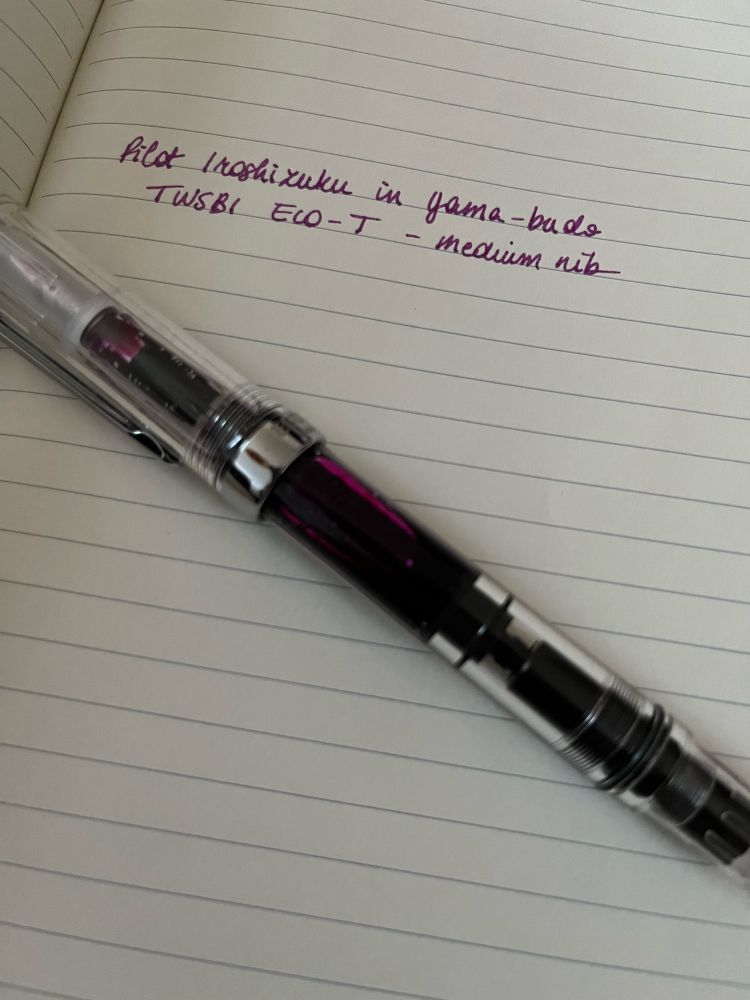 Pilot Iroshizuku in yama-budo
TWSBI ECO-T - medium nib